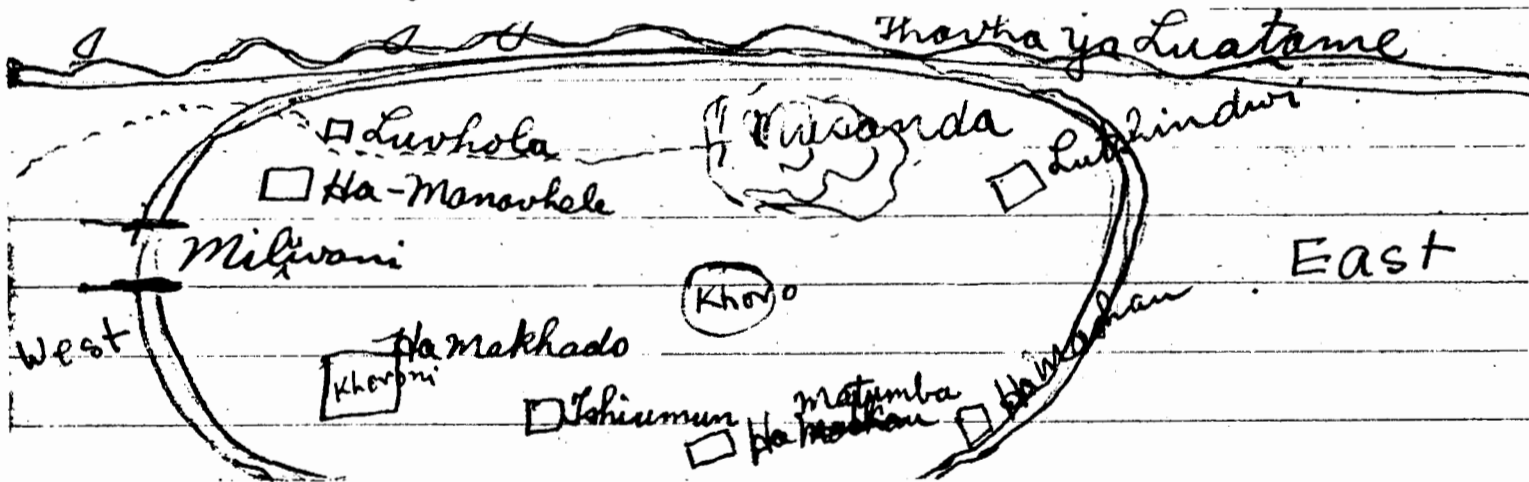 Thavha ya Luatame
Luvhola
Musanda
Lutshindwi
Ha-Manavhele
Milivani
East
Khoro
West
Ha Makhado
Khoroni
Tshiumuni
Matumba
Ha Mashau
Ha Mashau